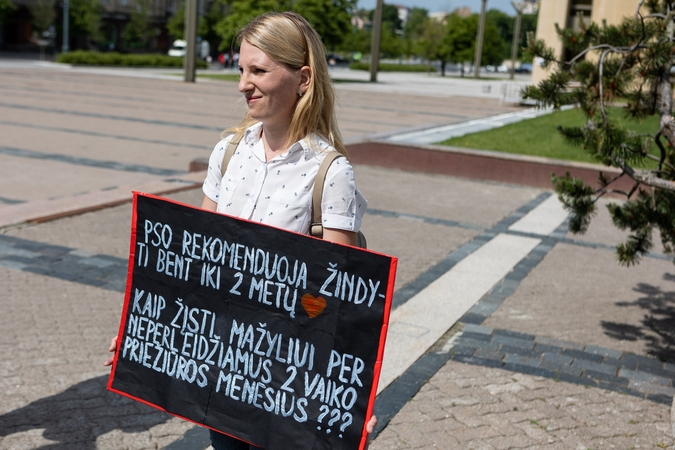 PSO REKOMENDUOJA ŽINDY-
TI BENT IKI 2 METŲ
KAIP ŽĮSTI MAŽYLIUI PER
NEPERLEIDŽIAMUS 2 VAIKO
PRIEŽIŪROS MĖNESIUS ???